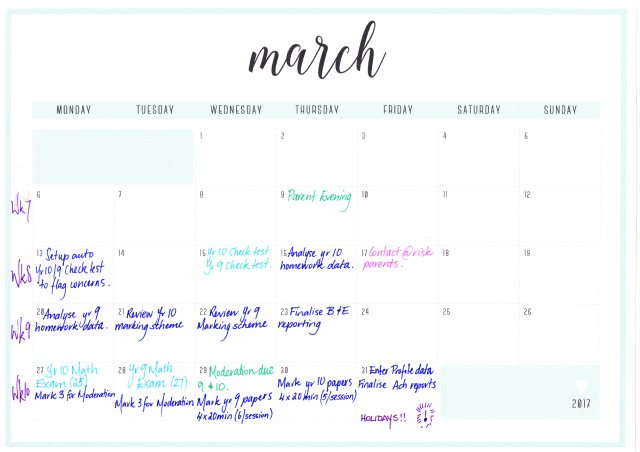 march
MONDAY TUESDAY WEDNESDAY THURSDAY FRIDAY SATURDAY SUNDAY
1 2 3 4 5
Wk 7
6 7 8 9 Parent Evening 10 11 12
Wk8
13 Setup auto
Yr 10/9 Check test
to flag concerns.
14
15 Yr 10 Check test
Yr 9 Check test.
16 Analyse yr 10
homework data.
17 Contact @ risk
parents.
18 19
Wk9
20 Analyse yr 9
homework data.
21 Review Yr 10
marking scheme
22 Review yr 9
Marking scheme
23 Finalise B+E
reporting
24 25 26
Wk10
27 Yr 10 Math
Exam (25)
Mark 3 for Moderation
28 Yr 9 Math
Exam (27)
Mark 3 for Moderation
29 Moderation due
9 + 10.
Mark yr 9 papers
4x20min (6/session)
30
Mark yr 10 papers
4x20min (5/session)
31 Enter Profile data
Finalise Ach reports
HOLIDAYS!!
2017